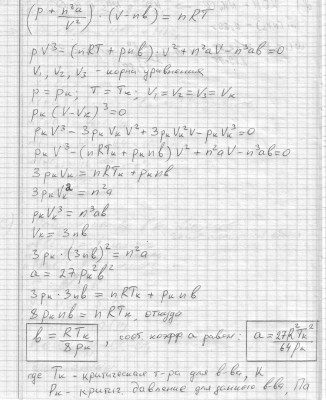 (p + n²a/V²) · (V - nв) = nRT
pV³ - (nRT + pнв) · V² + n²aV - n³ab = 0
V₁, V₂, V₃ - корни уравнения
p = pк, T = Tк, V₁ = V₂ = V₃ = Vк
pк (V - Vк)³ = 0
pкV³ - 3pкVкV² + 3pкVк²V - pкVк³ = 0
pкV³ - (nRTк + pкnв) V² + n²aV - n³ab = 0
3pкVк = nRTк + pкnв
3pкVк² = n²a
pкVк³ = n³ab
Vк = 3nв
3pк · (3nв)² = n²a
a = 27pк²b²
3pк · 3nв = nRTк + pкnв
8pкnв = nRTк, откуда
в = RTк/8pк , соот. коэфф a равен: a = 27R²Tк²/64pк
где Tк - критическая т-ра для в-ва, К
Pк - критич. давление для данного в-ва, Па